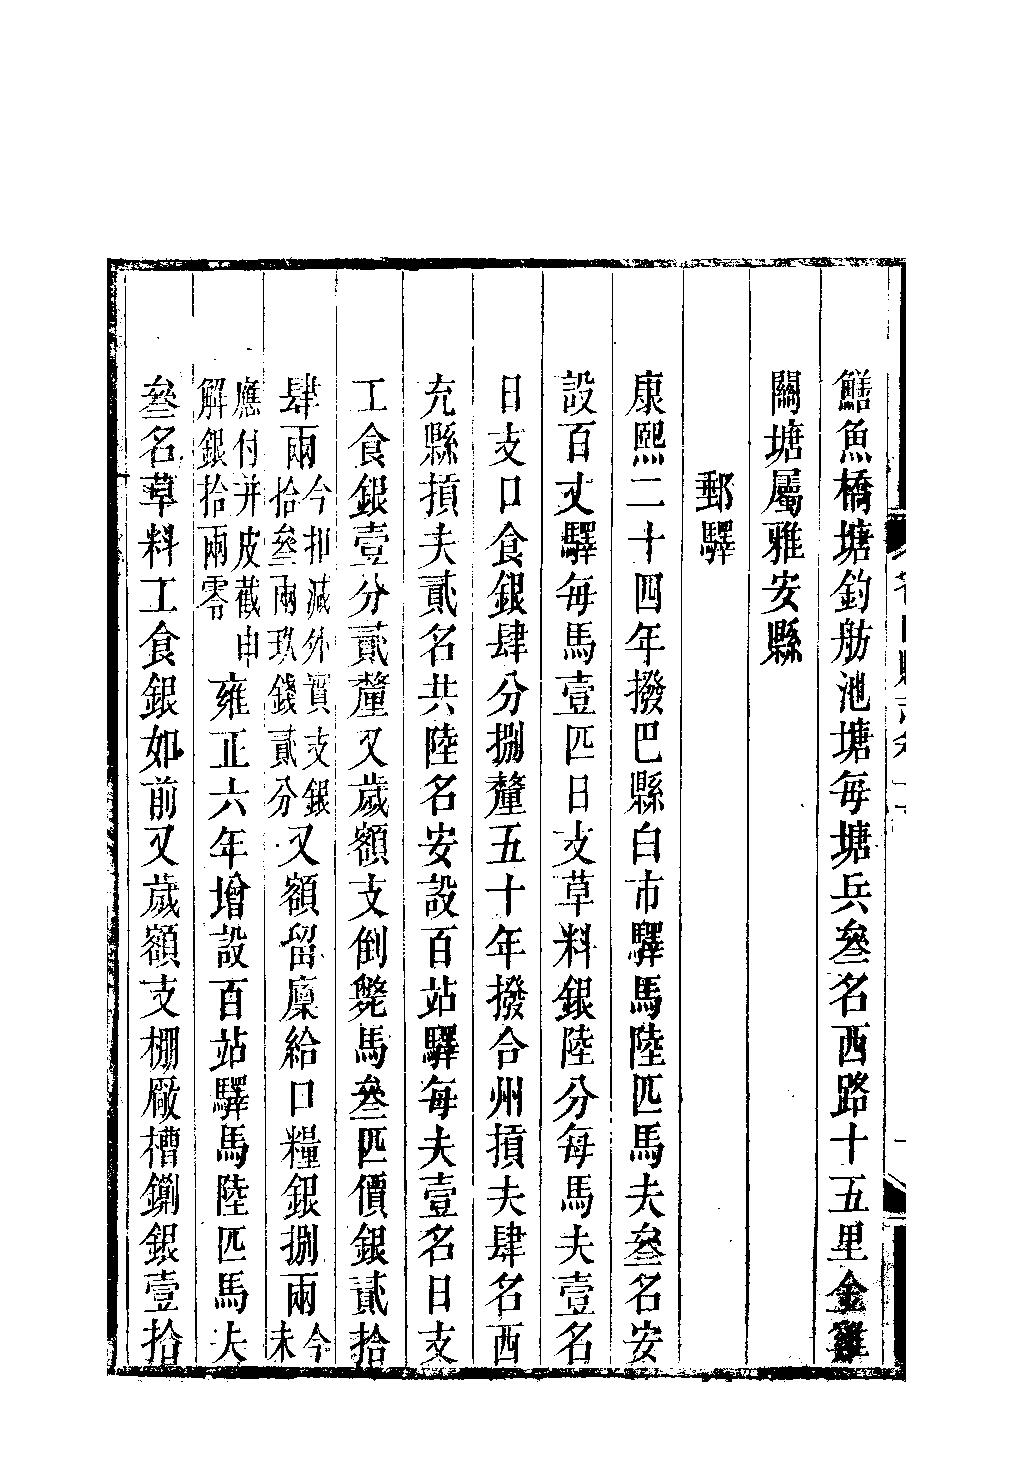 鱔魚橋塘釣舫池塘每塘兵叄名西路十五里金雞
關塘屬雅安縣
郵驛
康熙二十四年撥巴縣白市驛馬陸匹馬夫叄名安
設百丈驛每馬壹匹日支草料銀陸分每馬夫壹名
日支口食銀肆分捌釐五十年撥合州摃夫肆名西
充縣摃夫貳名共陸名安設百站驛每夫壹名日支
工食銀壹分貳釐又歲額支倒斃馬叄匹價銀貳拾
肆兩今扣減外實支銀拾叄兩玖錢貳分又額留廩給口糧銀捌兩今未
應付并皮截申解銀拾兩零雍正六年增設百站驛馬陸匹馬夫
叄名草料工食銀如前又歲額支棚厰槽鍘銀壹拾